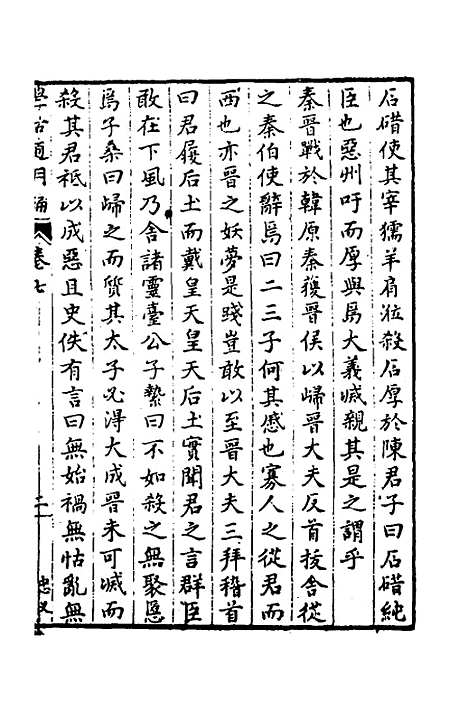 石碏使其宰獳羊肩涖殺石厚於陳君子曰石碏純
臣也惡州吁而厚與焉大義滅親其是之謂乎
秦晉戰於韓原秦獲晉侯以歸晉大夫反首拔舍從
之秦伯使辭焉曰二三子何其慼也寡人之從君而
西也亦晉之妖夢是踐豈敢以至晉大夫三拜稽首
曰君履后土而戴皇天皇天后土實聞君之言群臣
敢在下風乃舍諸靈臺公子縶曰不如殺之無聚慝
焉子桑曰歸之而質其太子必得大成晉未可滅而
殺其君祇以成惡且史佚有言曰無始禍無怙亂無
學古適用編 卷七 二 忠义